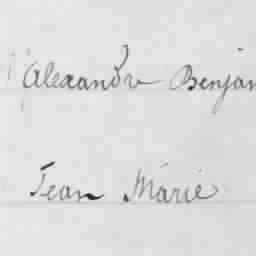 Alexandre Benjam
Jean Marie